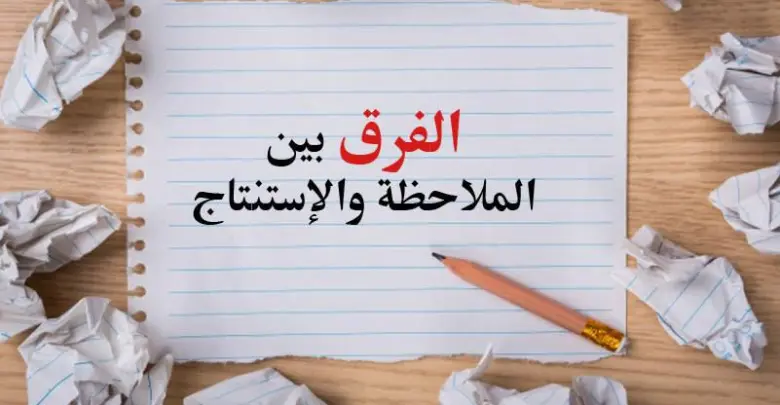 الفرق بين
الملاحظة والإستنتاج